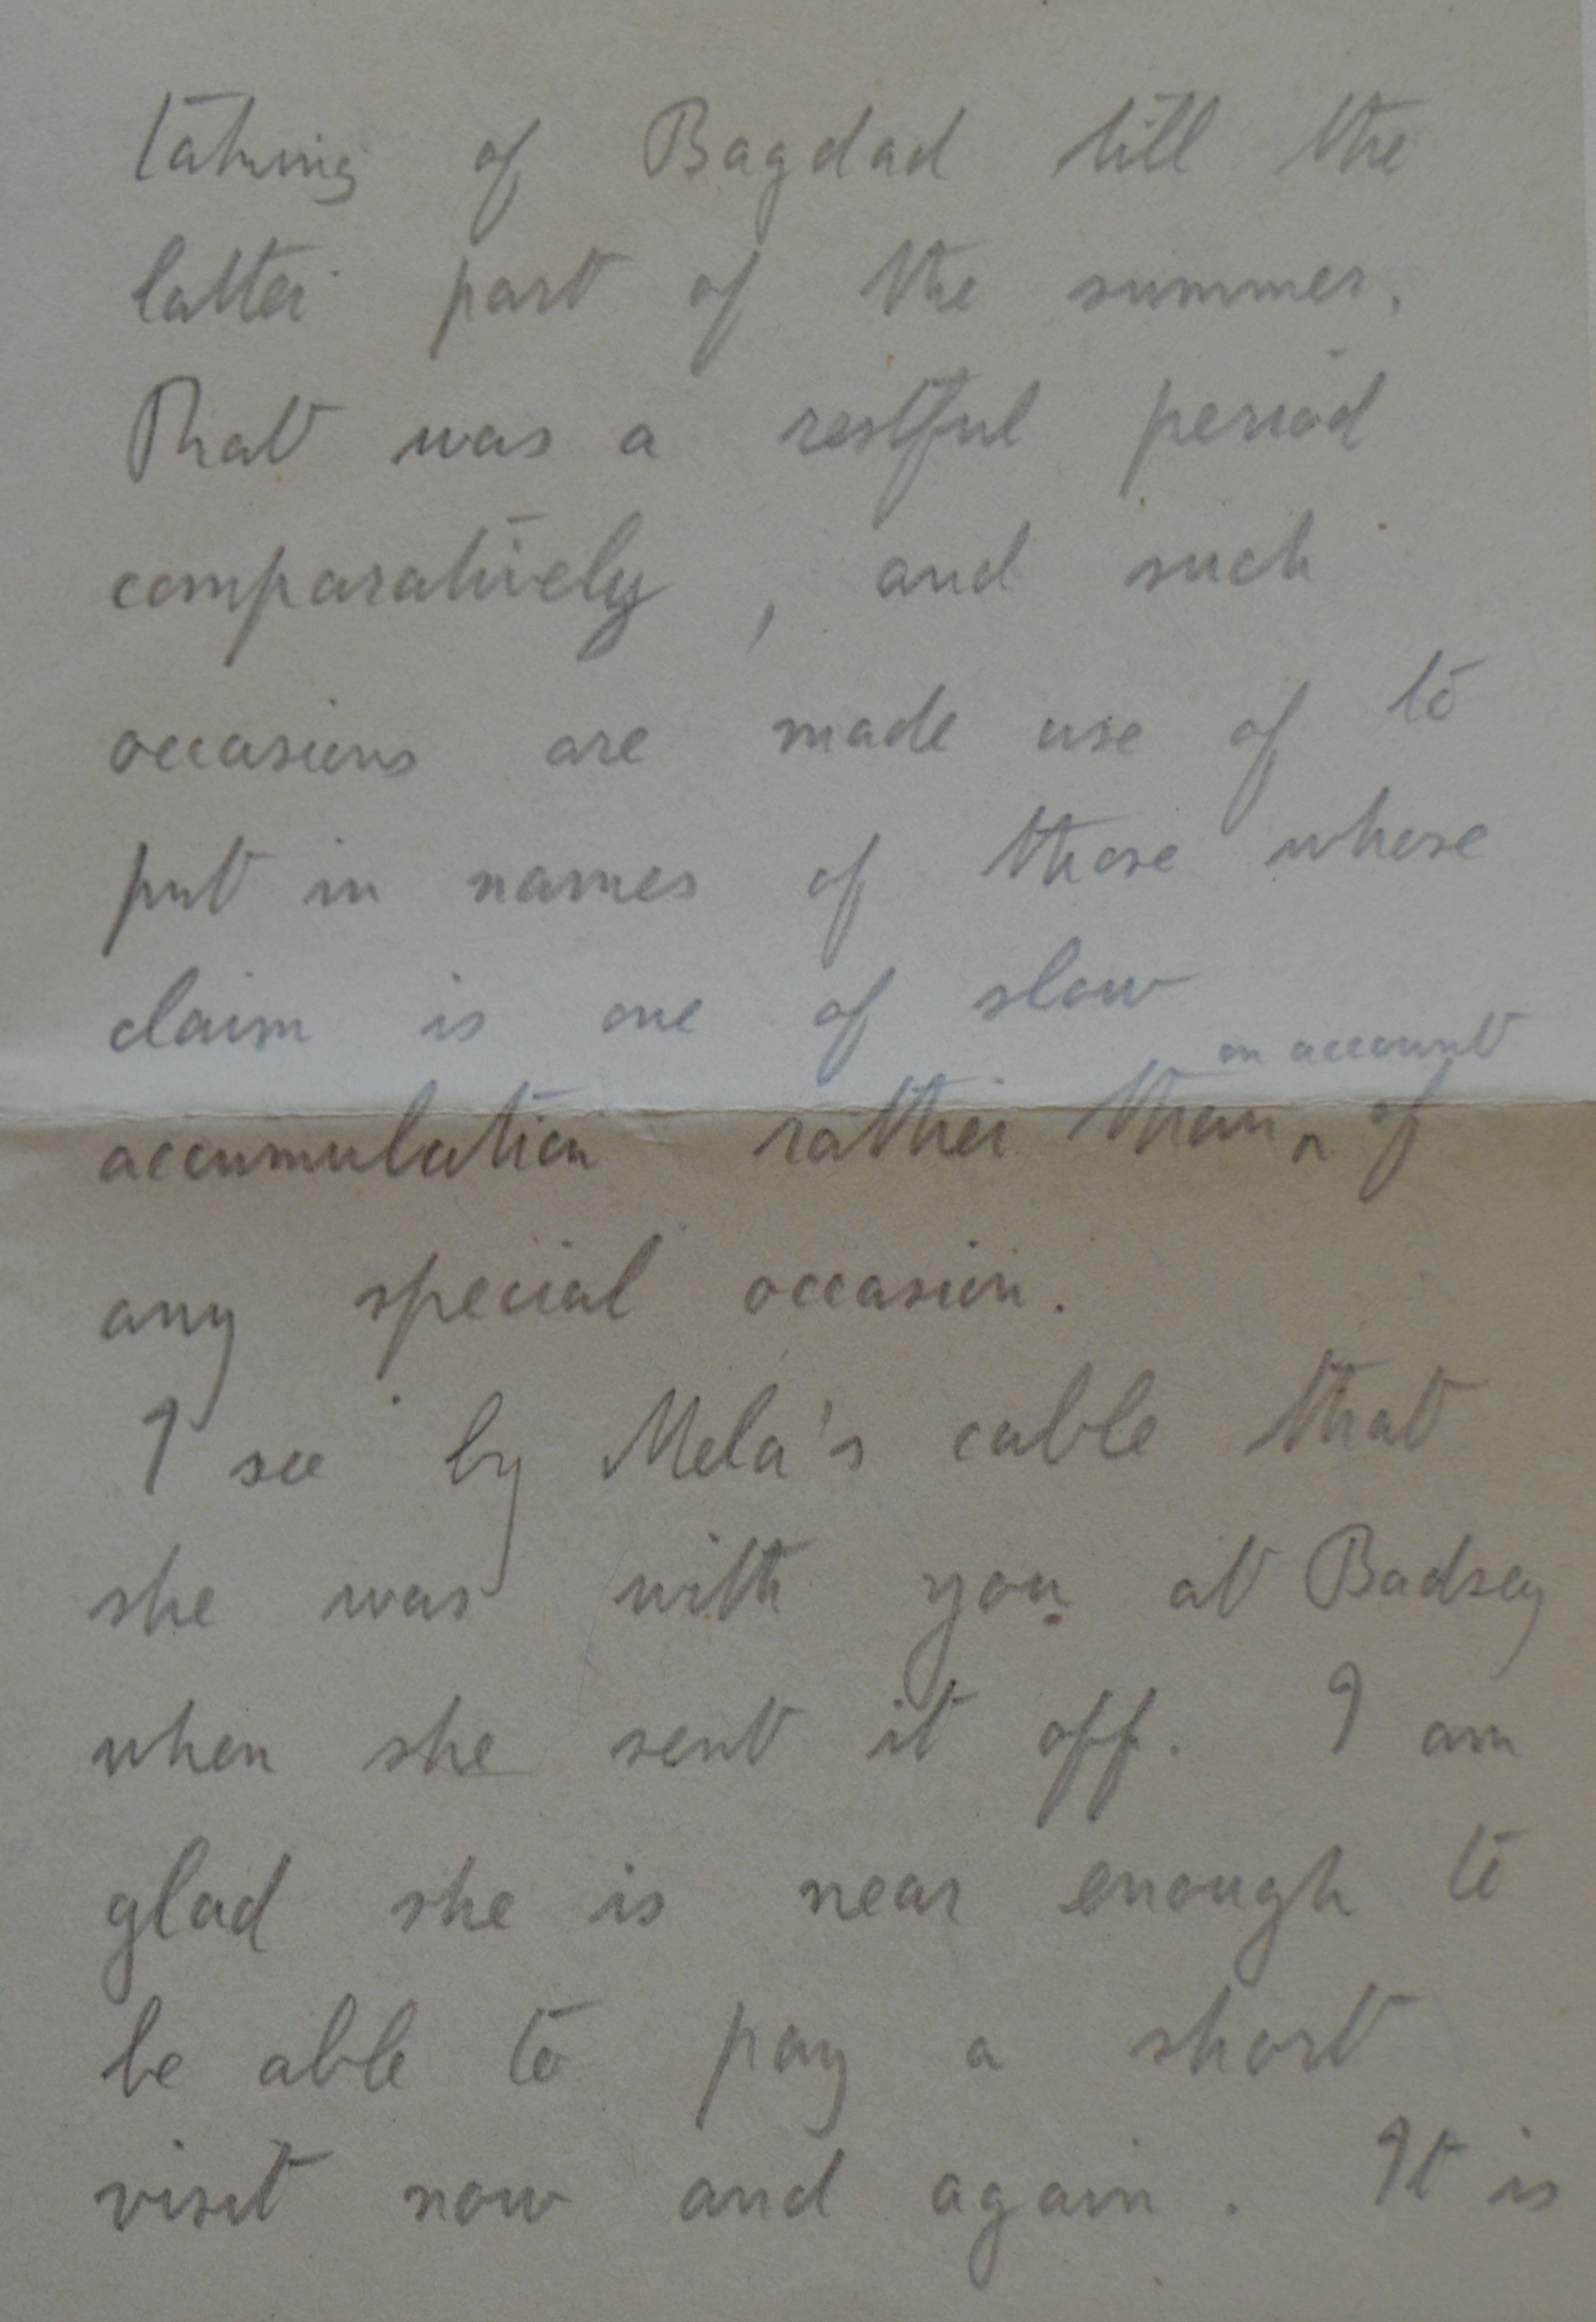 taking of Bagdad till the
latter part of the summer.
That was a restful period
comparatively, and such
occasions are made use of to
put in names of those whose
claim is one of slow
on account
accumulation rather than ^ of
any special occasion.
I see by Mela's cable that
she was with you at Badsey
when she sent it off. I am
glad she is near enough to
be able to pay a short
visit now and again. It is